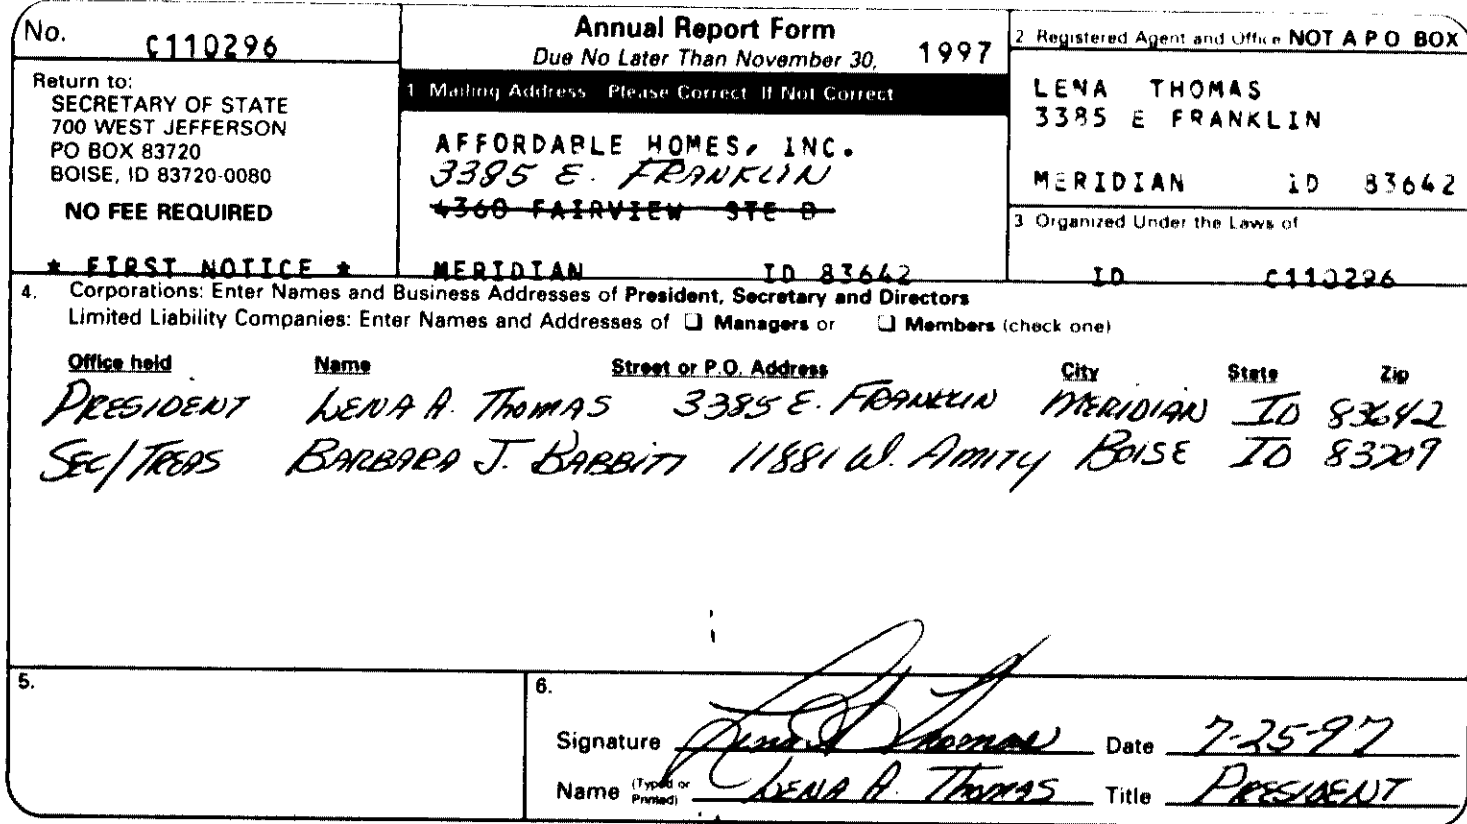 No. C110296
Return to:
SECRETARY OF STATE
700 WEST JEFFERSON
PO BOX 83720
BOISE, ID 83720-0080
NO FEE REQUIRED
* FIRST NOTICE *
Annual Report Form
Due No Later Than November 30, 1997
1 Mailing Address Please Correct If Not Correct
AFFORDABLE HOMES, INC.
3385 E. FRANKLIN
4360 FAIRVIEW STE B
MERIDIAN ID 83642
2 Registered Agent and Office NOT A P O BOX
LENA THOMAS
3385 E FRANKLIN
MERIDIAN ID 83642
3 Organized Under the Laws of
ID C110296
4. Corporations: Enter Names and Business Addresses of President, Secretary and Directors
Limited Liability Companies: Enter Names and Addresses of ❑ Managers or ❑ Members (check one)
Office held Name Street or P.O. Address City State Zip
PRESIDENT LENA A. THOMAS 3385 E. FRANKLIN MERIDIAN ID 83642
SEC/TREAS BARBARA J. BABBITT 11881 W. AMITY BOISE ID 83709
5.
6.
Signature Lena A Thomas Date 7-25-97
Name (Typed or Printed) LENA A. THOMAS Title PRESIDENT